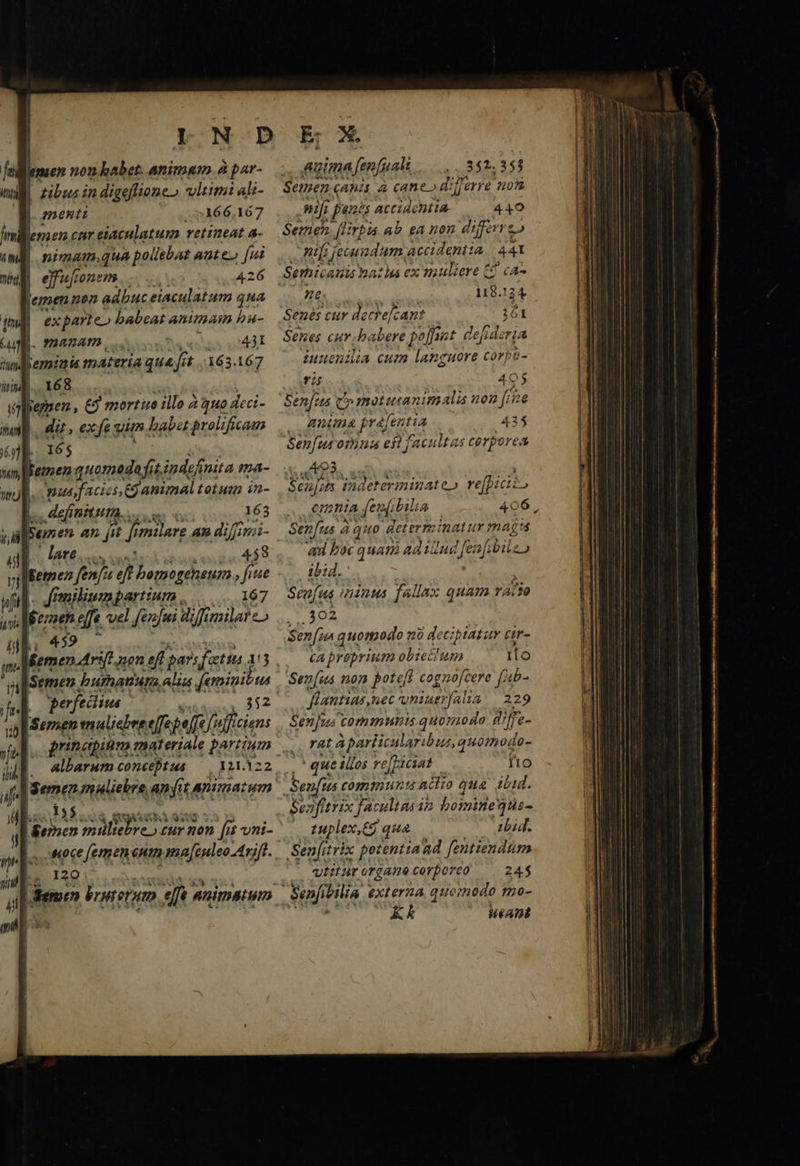 I N D E X.
Semen non habet animam à par-
tibus in digestione vltimi ali-
menti 166.167
Semen cur eiaculatum retineat a-
nimam, qua pollebat ante sui
effusionem 426
Semen non adhuc eiaculatum qua
ex parte habeat animam hu-
manam 431
Seminis materia quæ sit 163.167
168
Semen, & mortuo illo à quo deci-
dit, ex se vim habet prolificam
165
Semen quomodo fit indefinita ma-
nus, facies, & animal totum in-
definitum 163
Semen an sit similare an dissimi-
lare 458
Semen sensu est homogeneum, siue
similium partium 167
Semen esse vel sensui dissimilare
459
Semen Arist. non est pars fœtus 153
Semen humanum alius feminibus
perfectius 352
Semen muliebre esse posse sufficiens
principium materiale partium
albarum conceptus 121.122
Semen muliebre, an sit animatum
155
Semen muliebre cur non sit vni-
uoce semen cum masculeo Arist.
120
Semen brutorum esse animatum
anima sensuali 352.353
Semen canis a cane differre non
nisi penes accidentia 440
Semen stirpis ab ea non differre
nisi secundum accidentia 441
Semicanis natus ex muliere & ca-
ne. 118.134
Senes cur decrescant 361
Senes cur habere possint desideria
iuuenilia cum languore corpo-
ris 405
Sensus & motus animalis non sine
anima præsentia 435
Sensus omnis est facultas corporea
403
Sensus indeterminate respicit
omnia sensibilia 406,
Sensus à quo determinatur magis
ad hoc quam ad illud sensibile
ibid.
Sensus minus fallax quam ratio
302
Sensus quomodo nō decipiatur cir-
ca proprium obiectum 110
Sensus non potest cognoscere sub-
stantias, nec vniuersalia 229
Sensus communis quomodo diffe-
rat à particularibus, quomodo-
que illos respiciat 110
Sensus communis actio quæ ibid.
Sensitrix facultas in homine qus-
tuplex, & qua ibid.
Sensitrix potentia ad sentiendum
vtitur organo corporeo 245
Sensibilia externa quomodo mo-
Kk ueant